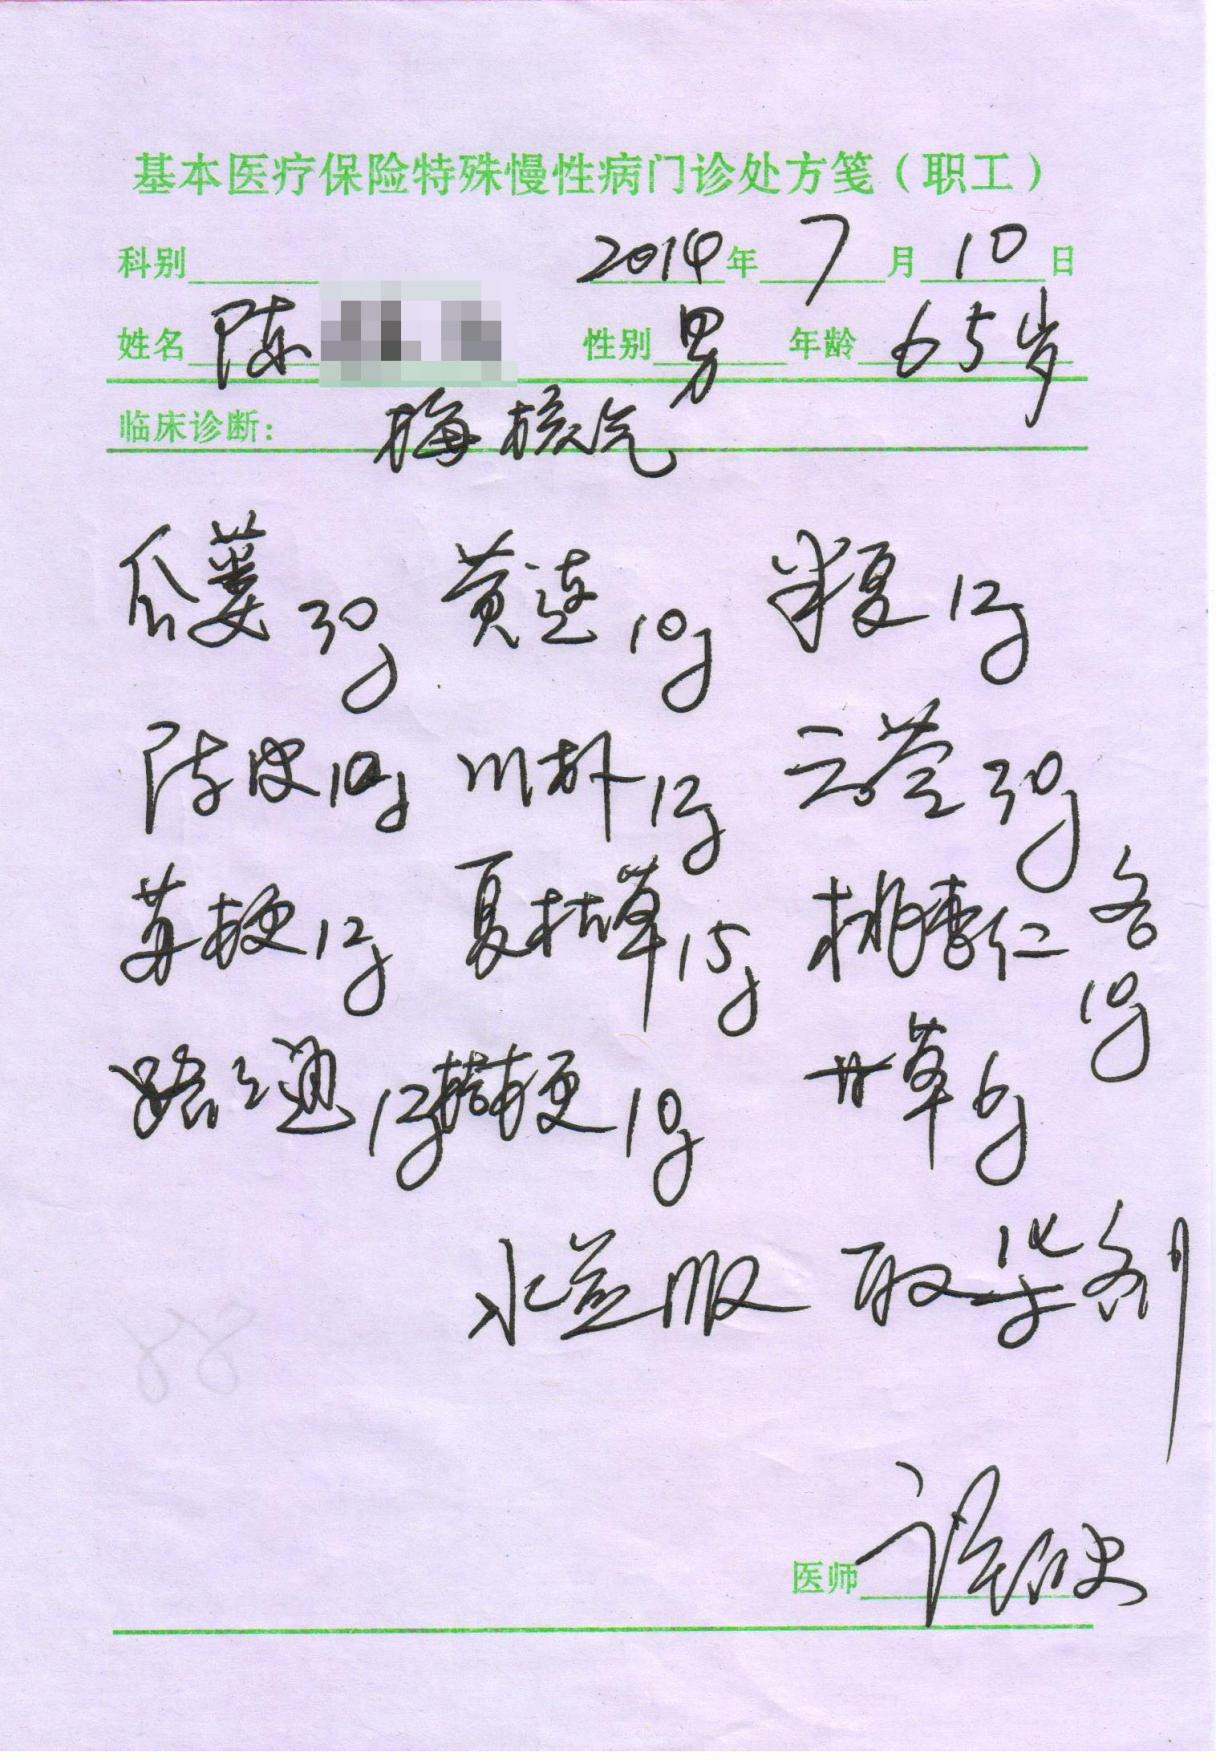 基本医疗保险特殊慢性病门诊处方笺（职工）
科别 2014年 7月 10日
姓名 陈 性别 男 年龄 65岁
临床诊断： 梅核气
瓜蒌30g 黄连10g 半夏12g
陈皮10g 川朴12g 云苓30g
苏梗12g 夏枯草15g 桃杏仁各10g
路路通12g 桔梗10g 甘草6g
水煎服 取 剂
医师